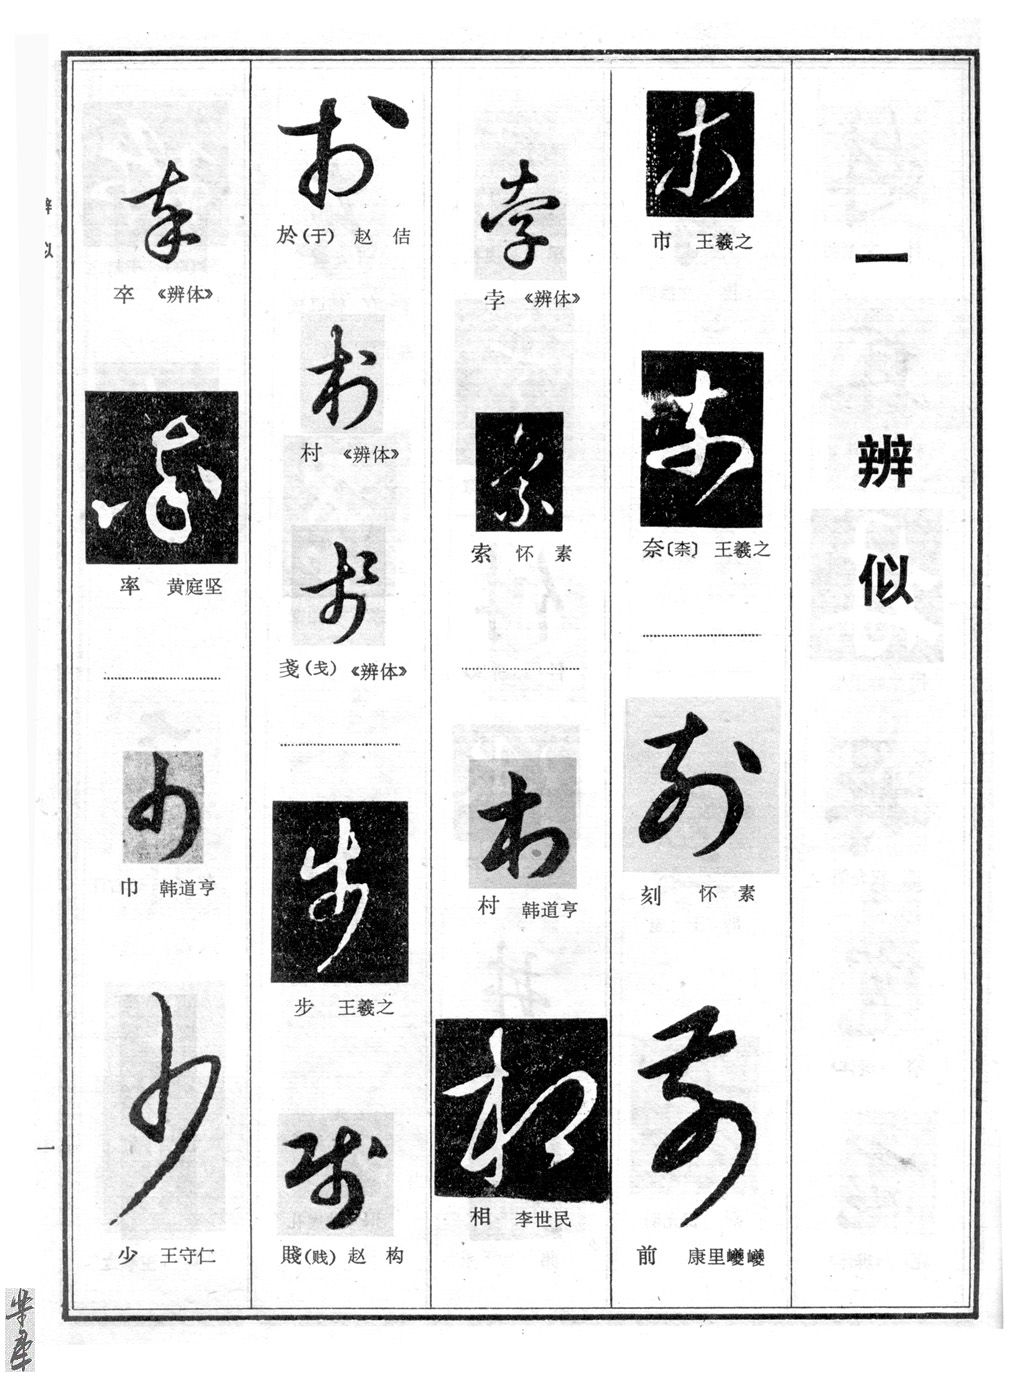 一 辨似
市 王羲之
奈〔柰〕 王羲之
刻 怀素
前 康里巙巙
孛 《辨体》
索 怀素
村 韩道亨
相 李世民
於(于) 赵佶
村 《辨体》
戔(戋) 《辨体》
步 王羲之
賤(贱) 赵构
卒 《辨体》
率 黄庭坚
巾 韩道亨
少 王守仁
辨似
一